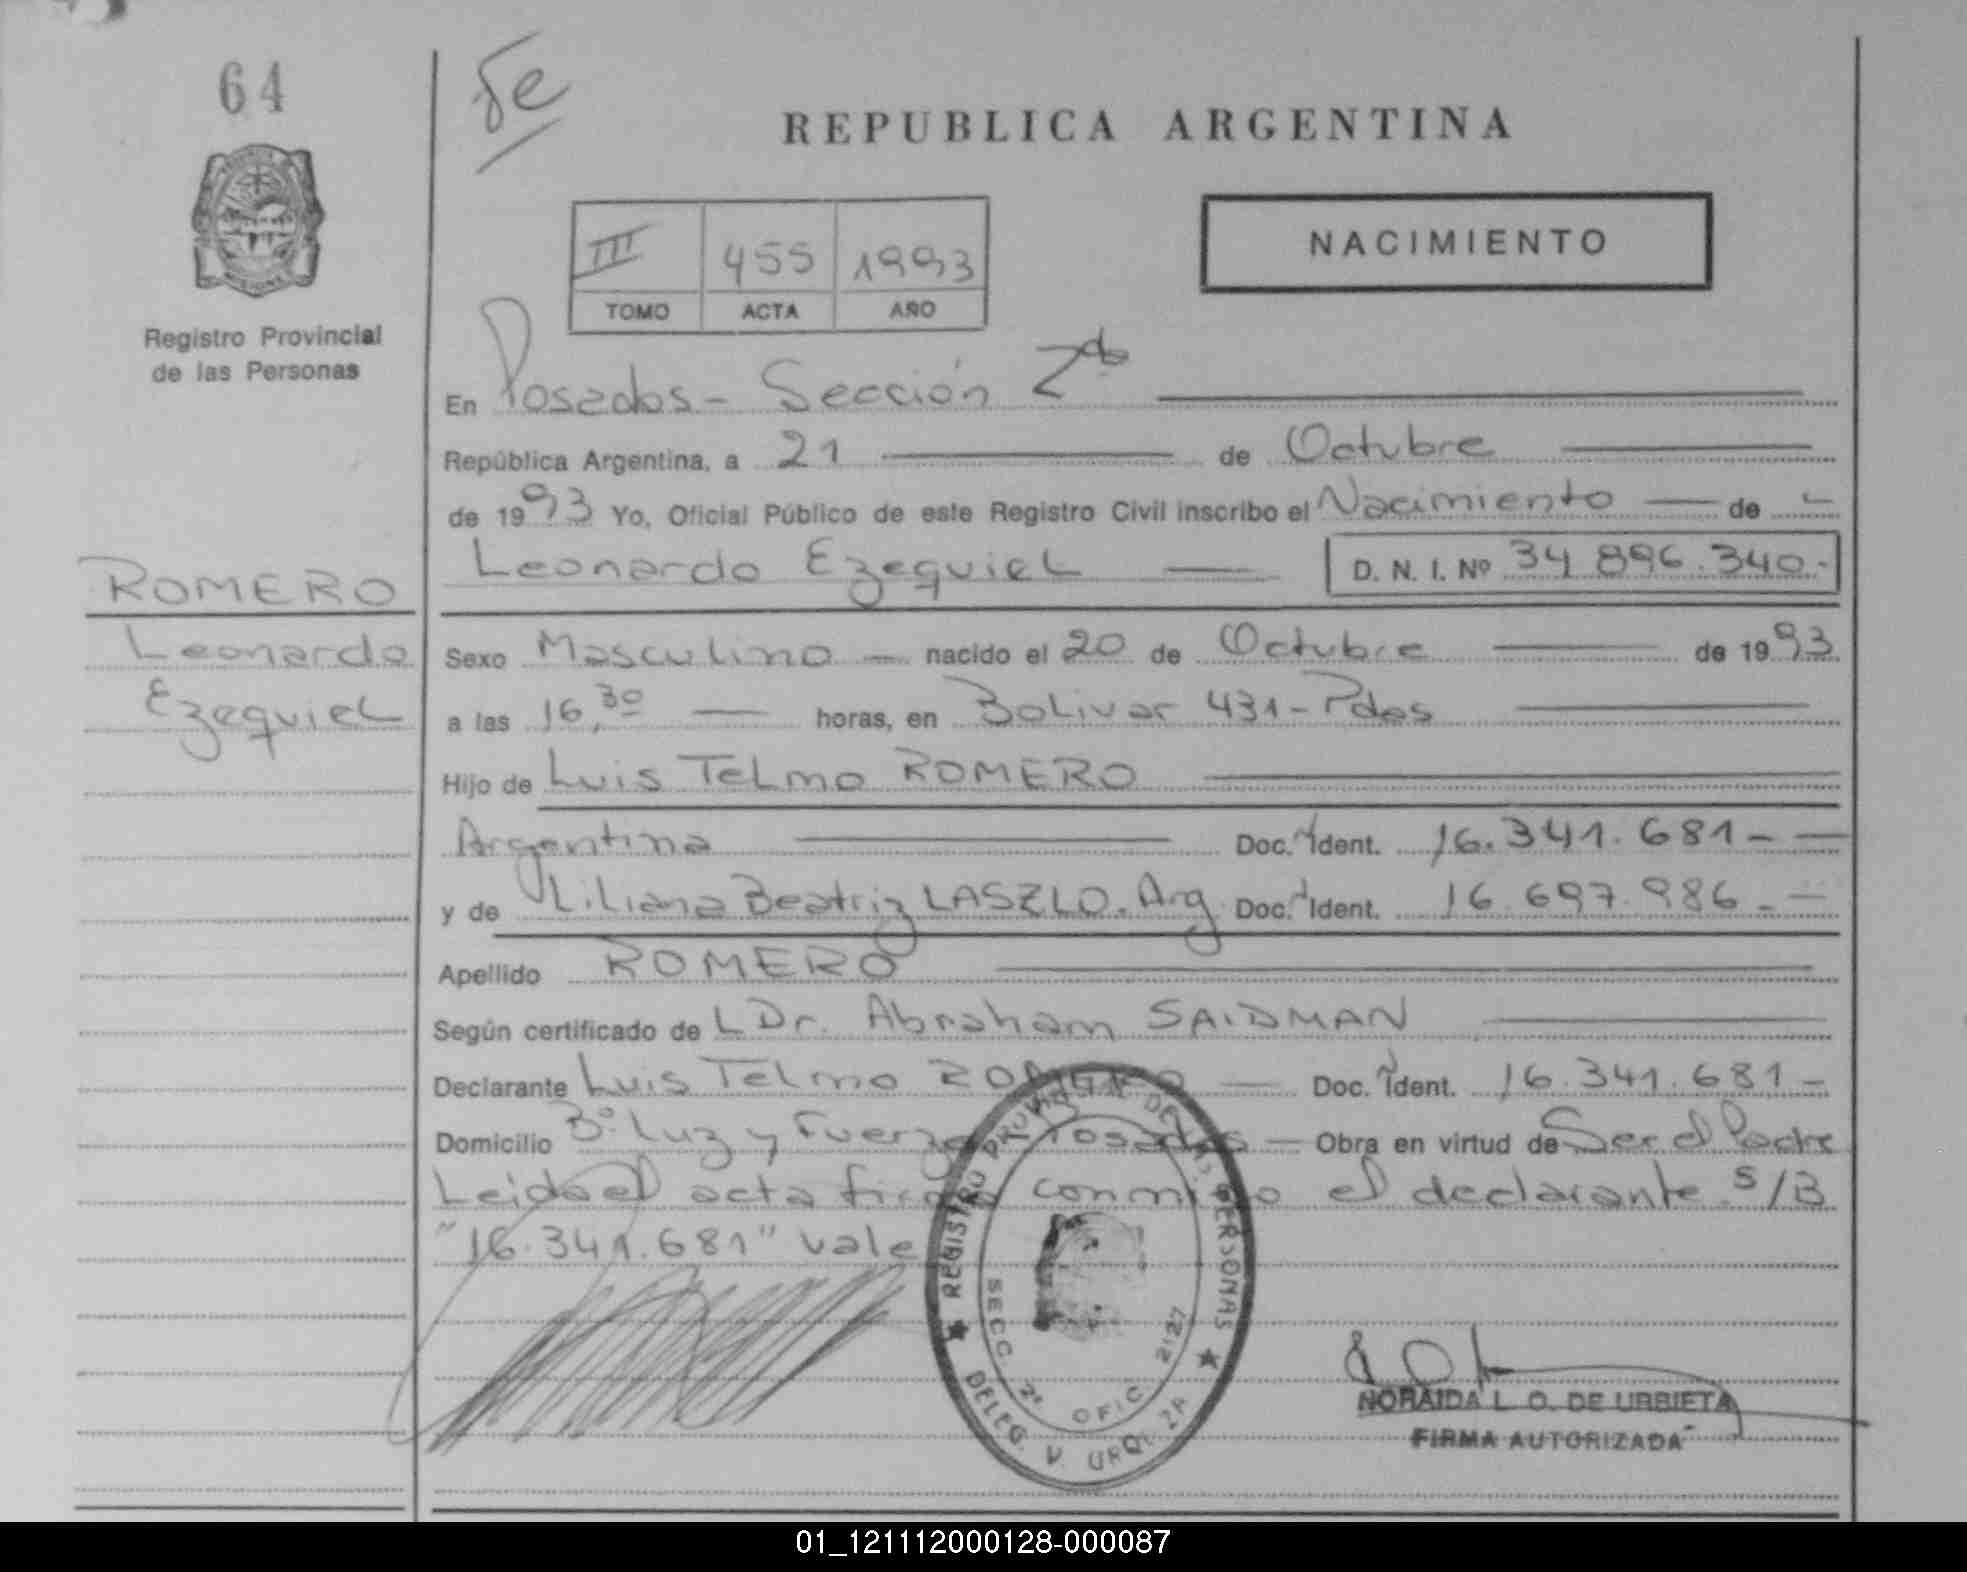 64
Je
REPUBLICA ARGENTINA
NACIMIENTO
III 455 1993
TOMO ACTA AÑO
Registro Provincial
de las Personas
En Posadas - Sección 2da
República Argentina, a 21 de Octubre
de 1993 Yo, Oficial Público de este Registro Civil inscribo el Nacimiento de
Leonardo Ezequiel D. N. I. Nº 34 896.340.-
ROMERO
Leonardo
Ezequiel
Sexo Masculino nacido el 20 de Octubre de 1993
a las 16,30 horas, en Bolivar 431 - Pdas
Hijo de Luis Telmo ROMERO
Argentina Doc. Ident. 16.341.681 -
y de Liliana Beatriz LASZLO. Arg. Doc. Ident. 16.697.986 -
Apellido ROMERO
Según certificado de L Dr. Abraham SAIDMAN
Declarante Luis Telmo ROMERO Doc. Ident. 16.341.681 -
Domicilio Bº Luz y Fuerza Posadas Obra en virtud de Ser el Padre
Leida el acta firma conmigo el declarante. S/B
"16.341.681" vale
REGISTRO PROVINCIAL DE LAS PERSONAS
SECC. 2ª OFIC. 2127
DELEG. V. URQUIZA
NORAIDA L. O. DE URBIETA
FIRMA AUTORIZADA
01_121112000128-000087